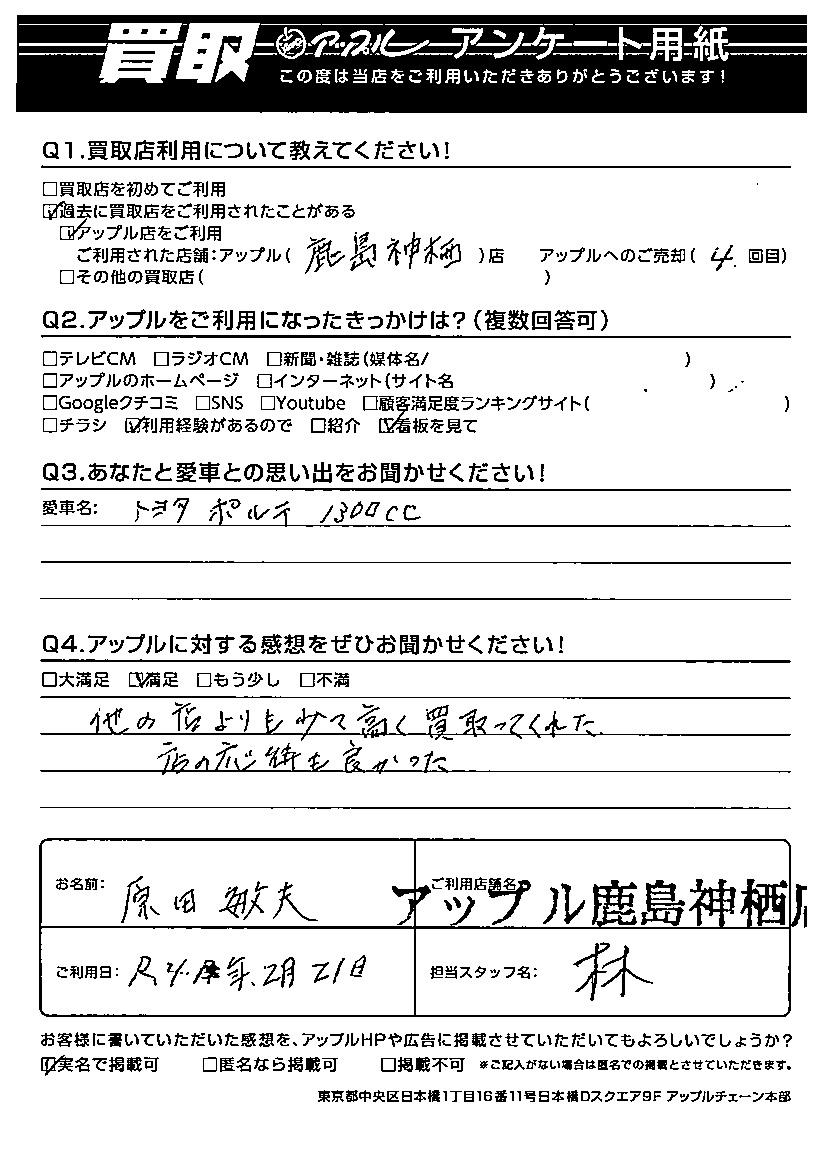 買取 アップル アンケート用紙
この度は当店をご利用いただきありがとうございます!
Q1.買取店利用について教えてください!
□買取店を初めてご利用
☑過去に買取店をご利用されたことがある
☑アップル店をご利用
ご利用された店舗:アップル(鹿島神栖)店 アップルへのご売却(4.回目)
□その他の買取店( )
Q2.アップルをご利用になったきっかけは?(複数回答可)
□テレビCM □ラジオCM □新聞・雑誌(媒体名/ )
□アップルのホームページ □インターネット(サイト名 )
□Googleクチコミ □SNS □Youtube □顧客満足度ランキングサイト( )
□チラシ ☑利用経験があるので □紹介 ☑看板を見て
Q3.あなたと愛車との思い出をお聞かせください!
愛車名: トヨタ ポルテ 1300cc
Q4.アップルに対する感想をぜひお聞かせください!
□大満足 ☑満足 □もう少し □不満
他の店よりも少て高く買取ってくれた.
店の応待も良かった
お名前: 原田 敏夫
ご利用店舗名:
アップル鹿島神栖店
ご利用日: R4.年.2月21日
担当スタッフ名: 林
お客様に書いていただいた感想を、アップルHPや広告に掲載させていただいてもよろしいでしょうか?
☑実名で掲載可 □匿名なら掲載可 □掲載不可 ※ご記入がない場合は匿名での掲載とさせていただきます。
東京都中央区日本橋1丁目16番11号日本橋Dスクエア9F アップルチェーン本部